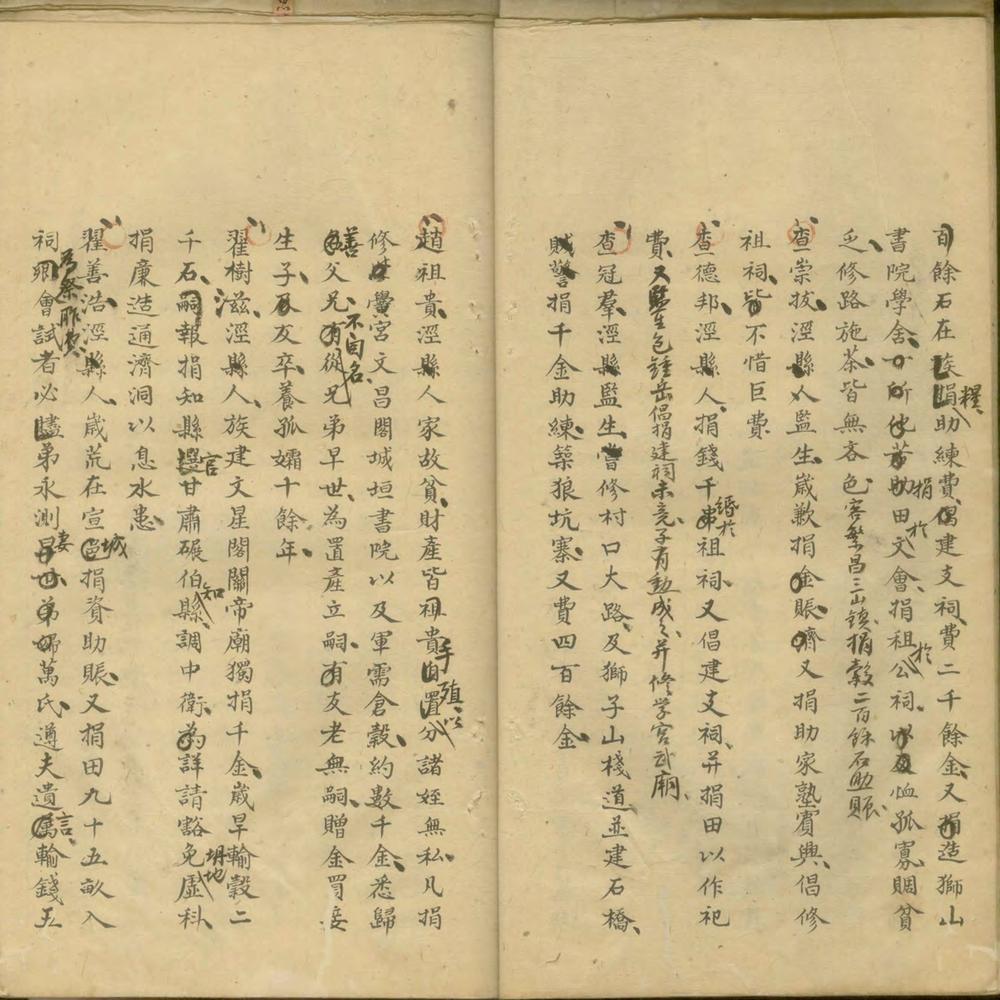 百餘石在族捐助練費倡建支祠費二千餘金又捐造獅山
糧
書院學舍十所他若助田文會捐租公祠以及恤孤寡賙貧
捐於於
乏修路施茶皆無吝色客繁昌三山鎮捐穀二百餘石助賑
查崇拔涇縣人監生歲歉捐金賑濟又捐助家塾賓興倡修
祖祠皆不惜巨費
查德邦涇縣人捐錢千串祖祠又倡建支祠并捐田以作祀
緡於
費又監生包鍾岳倡捐建祠未竟子有勳成之并修学宮武廟
查冠羣涇縣監生嘗修村口大路及獅子山棧道並建石橋
賊警捐千金助練築狼坑寨又費四百餘金
趙祖貴涇縣人家故貧財產皆祖貴自置分諸姪無私凡捐
手殖以
修黌宮文昌閣城垣書院以及軍需倉穀約數千金悉歸
善父兄有從兄弟早世為置產立嗣有友老無嗣贈金買妾
不自名
生子友卒養孤孀十餘年
翟樹滋涇縣人族建文星閣關帝廟獨捐千金歲旱輸穀二
千石嗣報捐知縣選甘肅碾伯縣調中衛為詳請豁免虛科
官知坍地
捐廉造通濟洞以息水患
翟善浩涇縣人歲荒在宣邑捐資助賑又捐田九十五畝入
城
祠卿會試者必贐弟永測早世弟婦萬氏遵夫遺屬輸錢五
為祭胙費妻言